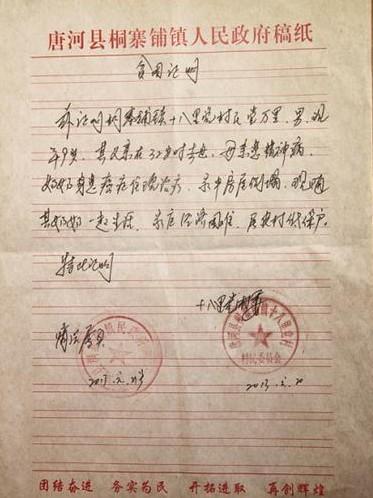 唐河县桐寨铺镇人民政府稿纸
贫困证明
兹证明桐寨铺镇十八里党村民党万里,男,现
年9岁,其父亲在32岁时去世,母亲患精神病,
奶奶身患癌症住院治疗,家中房屋倒塌,现随
其奶奶一起生活,家庭经济困难,属我村低保户。
特此证明
十八里党村委
情况属实
村民委员会
团结奋进 务实为民 开拓进取 再创辉煌